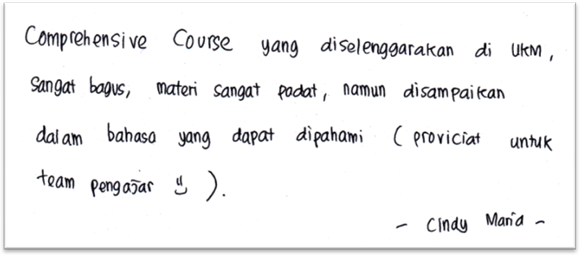 Comprehensive Course yang diselenggarakan di UKM,
Sangat bagus, materi sangat padat, namun disampaikan
dalam bahasa yang dapat dipahami ( proviciat untuk
team pengajar ).
- Cindy Maria -